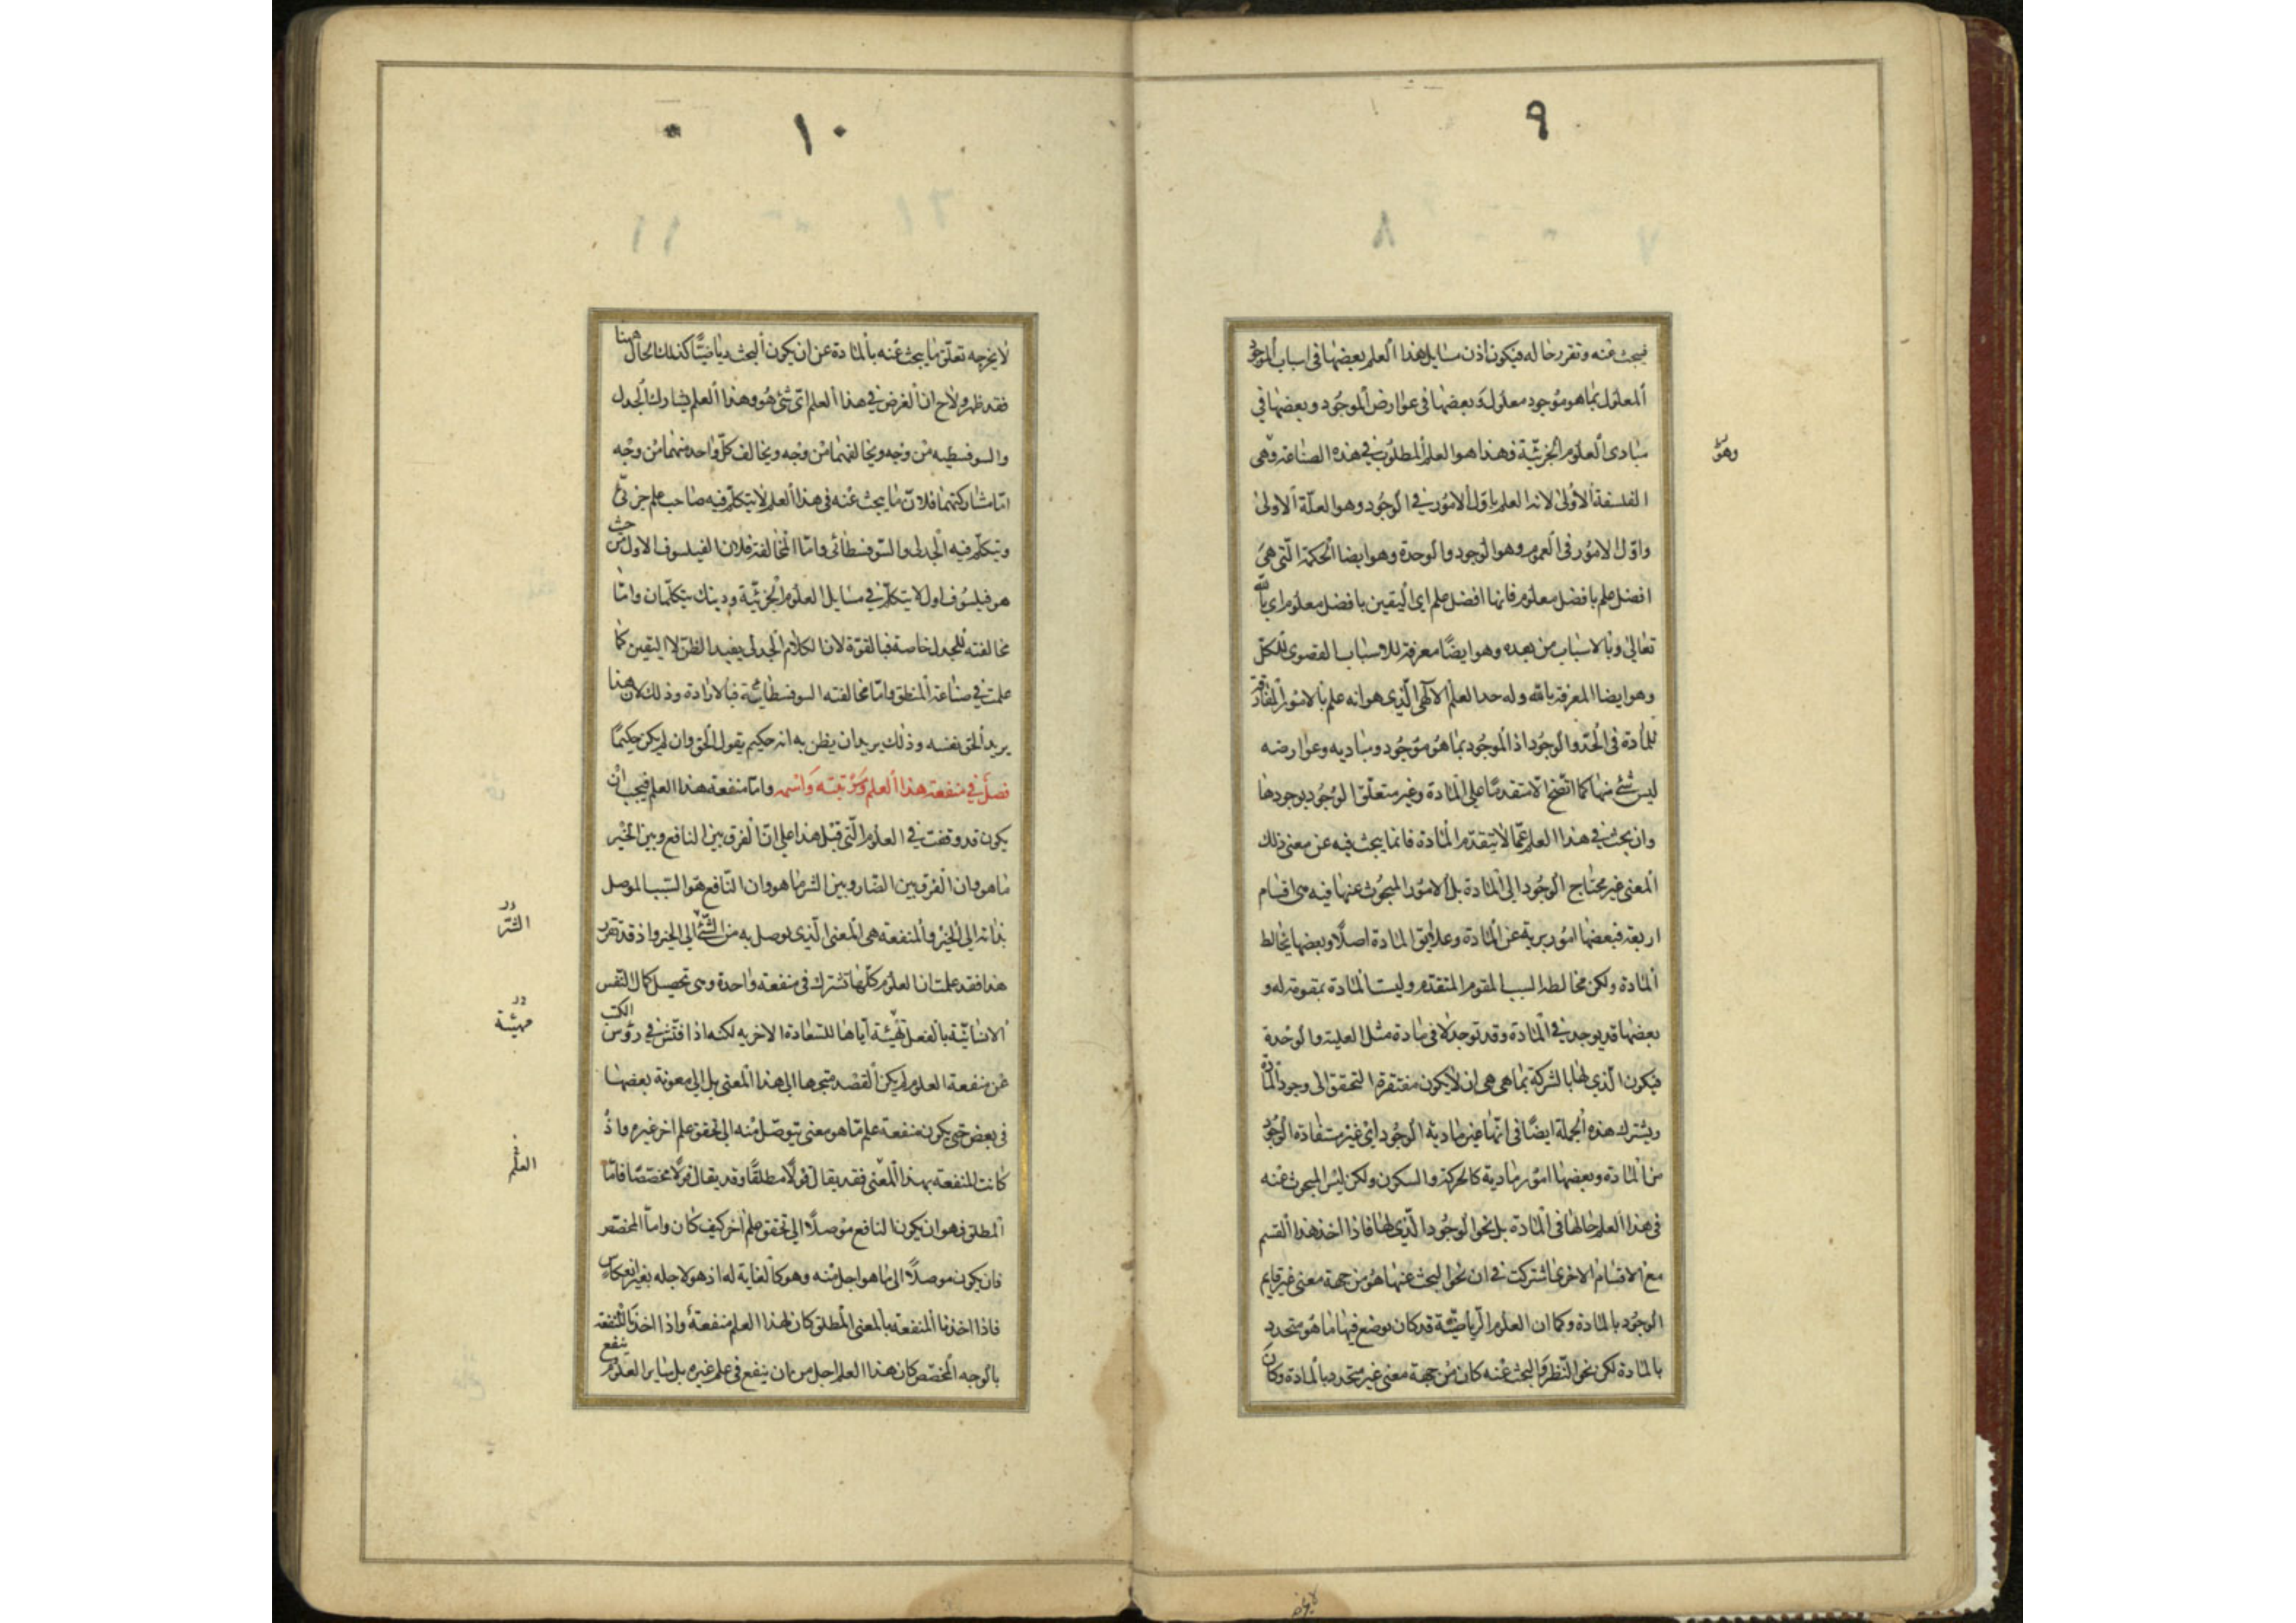 ٩
فيبحث عنه وتقرر حاله فيكون اذن مسايل هذا العلم بعضها فى اسباب الموجود
المعلول بما هو موجود معلول وبعضها فى عوارض الموجود وبعضها في
مبادى العلوم الجزئية فهذا هو العلم المطلوب في هذه الصناعة وهى
وهو
الفلسفة الاولى لانه العلم باول الامور في الوجود وهو العلة الاولى
واول الامور فى العموم وهو الوجود والوحدة وهو ايضا الحكمة التى هى
افضل علم بافضل معلوم فانها افضل علم اى اليقين بافضل معلوم اى بالله
تعالى وبالاسباب من بعده وهو ايضا معرفة للاسباب القصوى للكل
وهو ايضا المعرفة بالله وله حد العلم الالهى الذى هو انه علم بالامور المفارقة
للمادة فى الحد والوجود اذ الموجود بما هو موجود ومباديه وعوارضه
ليس شئ منها كما اتضح الا متقدما على المادة وغير متعلق الوجود بوجودها
وان بحث في هذا العلم عما لا يتقدم المادة فانما يبحث فيه عن معنى ذلك
المعنى غير محتاج الوجود الى المادة بل الامور المبحوث عنها فيه هى اقسام
اربعة فبعضها امور برية عن المادة وعلايق المادة اصلا وبعضها يخالط
المادة ولكن مخالطه السبب المقوم المتقدم وليست المادة بمقومة له و
بعضها قد يوجد في المادة وقد توجد لا فى مادة مثل العلية والوحدة
فيكون الذي لها بالشركة بما هى هى ان لا يكون مفتقرة التحقق الى وجود المادة
ويشترك هذه الجملة ايضا فى انها غير مادية الوجود اى غير مستفادة الوجود
من المادة وبعضها امور مادية كالحركة والسكون ولكن ليس المبحوث عنه
فى هذا العلم حالها فى المادة بل نحو الوجود الذى لها فاذا اخذ هذا القسم
مع الاقسام الاخرى اشتركت في ان نحو البحث عنها هو من جهة معنى غير قايم
الوجود بالمادة وكما ان العلوم الرياضية قد كان يوضع فيها ما هو متحدد
بالمادة لكن نحو النظر والبحث عنه كان من جهة معنى غير متحدد بالمادة وكان
١٠
لا يخرجه تعلق ما يبحث عنه بالمادة عن ان يكون البحث رياضيا كذلك الحال هنا
فقد ظهر ولاح ان الغرض في هذا العلم اى شئ هو وهذا العلم يشارك الجدل
والسوفسطيه من وجه ويخالفهما من وجه ويخالف كل واحد منهما من وجه
اما مشاركتهما فلان ما يبحث عنه فى هذا العلم لا يتكلم فيه صاحب علم جزئى
ويتكلم فيه الجدلى والسوفسطائى واما المخالفة فلان الفيلسوف الاول من حيث
هو فيلسوف اول لا يتكلم في مسايل العلوم الجزئية وذينك يتكلمان واما
مخالفته للجدل خاصة فبالقوة لان الكلام الجدلى يفيد الظن لا اليقين كما
علمت في صناعة المنطق واما مخالفته السوفسطائية فبالارادة وذلك لان هذا
يريد الحق نفسه وذلك يريد ان يظن به انه حكيم يقول الحق وان لم يكن حكيما
فصل في منفعة هذا العلم ومرتبته واسمه واما منفعة هذا العلم فيجب ان
يكون قد وقفت في العلوم التى قبل هذا على ان الفرق بين النافع وبين الخير
ما هو وان الفرق بين الضار وبين الشر ما هو وان النافع هو السبب الموصل
بذاته الى الخير والمنفعة هى المعنى الذى يوصل به من الشئ الى الخير واذ قد تقرر
الشر
هذا فقد علمت ان العلوم كلها تشترك فى منفعة واحدة وهى تحصيل كمال النفس
الانسانية بالفعل تهيئة اياها للسعادة الاخريه لكنه اذا فتش في رؤس الكتب
مهيئة
عن منفعة العلوم لم يكن القصد متجها الى هذا المعنى بل الى معونة بعضها
فى بعض حتى يكون منفعة علم ما هو معنى يتوصل منه الى تحقق علم اخر غيره واذ
كانت المنفعة بهذا المعنى فقد يقال قولا مطلقا وقد يقال قولا مخصصا فاما
العلم
المطلق فهو ان يكون النافع موصلا الى تحقق علم اخر كيف كان واما المخصص
فان يكون موصلا الى ما هو اجل منه وهو كالغاية له اذ هو لاجله بغير انعكاس
فاذا اخذنا المنفعة بالمعنى المطلق كان لهذا العلم منفعة واذا اخذنا المنفعة
بالوجه المخصص كان هذا العلم اجل من ان ينفع فى علم غيره بل ساير العلوم ينفع